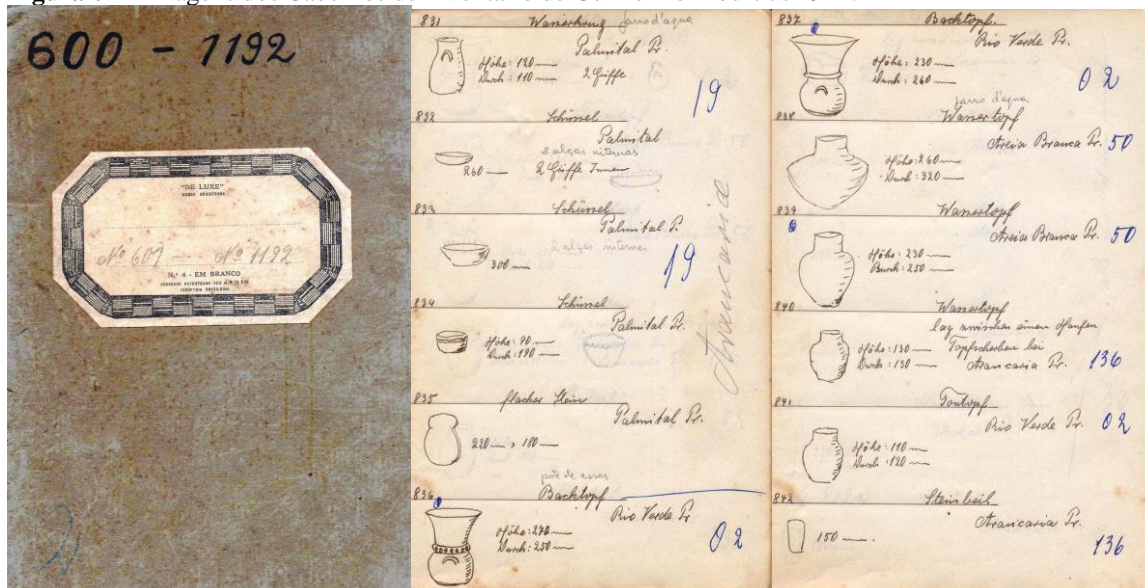 600 - 1192
"DE LUXE"
MARCA REGISTRADA
Nº 607 - Nº 1192
N.º 4 - EM BRANCO
831 Wasserkrug jarro d'agua
Palmital Pr.
Höhe: 120
Durch: 110 2 Griffe
19
832 Schüssel
Palmital
2 alças internas
260 2 Griffe Innen
833 Schüssel
Palmital P.
2 alças internas
300
19
834 Schüssel
Palmital Pr.
Höhe: 90
Durch: 190
Araucaria
835 flacher Stein
Palmital Pr.
220 × 180
pote de assar
836 Backtopf
Rio Verde Pr
Höhe: 270
Durch: 250
02
837 Backtopf.
Rio Verde Pr.
Höhe: 230
Durch: 260
02
jarro d'agua
838 Wassertopf
Areia Branca Pr. 50
Höhe: 260
Durch: 320
839 Wassertopf
Areia Branca Pr. 50
Höhe: 230
Durch: 250
840 Wassertopf
lag zwischen einen Haufen
Höhe: 130 Topfscherben bei
Durch: 130 Araucaria Pr. 136
841 Tontopf
Rio Verde Pr. 02
Höhe: 110
Durch: 120
842 Steinbeil
Araucaria Pr.
150
136